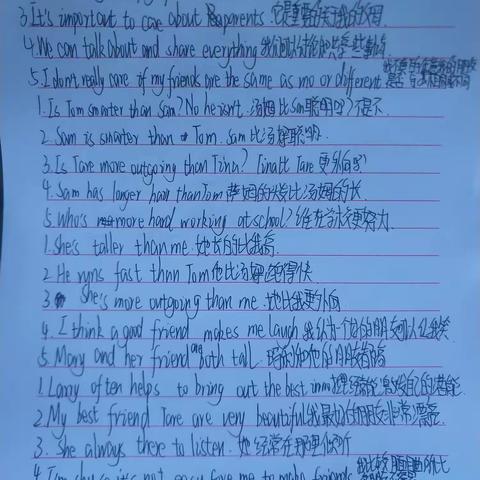 3. It's important to care about parents. 它是重要的关于我的
4. We can talk about and share everything 我们可以讨论和分享一些事情
5. I don't really care if my friends are the same as mo or different
1. Is Tom smarter than Sam? No he isn't. 汤姆比sam聪明吗? 不是
2. Sam is smarter than Tom. Sam比汤姆聪明.
3. Is Tare more outgoing than Tina? Tina比Tare更外向吗?
4. Sam has longer hair than Tom 萨姆的头发比汤姆的长
5. Who's more hard working at school? 谁在学校更努力.
1. She's taller than me. 她长的比我高.
2. He runs fast than Tom 他比汤姆跑得快
3. She's more outgoing than me. 她比我更外向
4. I think a good friend makes me laugh 我认为一个好的朋友可以让我笑
5. Mary and her friend are both tall. 玛丽和他的朋友都高
1. Larry often helps to bring out the best in me
2. My best friend Tare are very beautiful 我最好的朋友非常漂亮
3. She always there to listen. 她经常在那里倾听
4. it's not easy for me to make friends